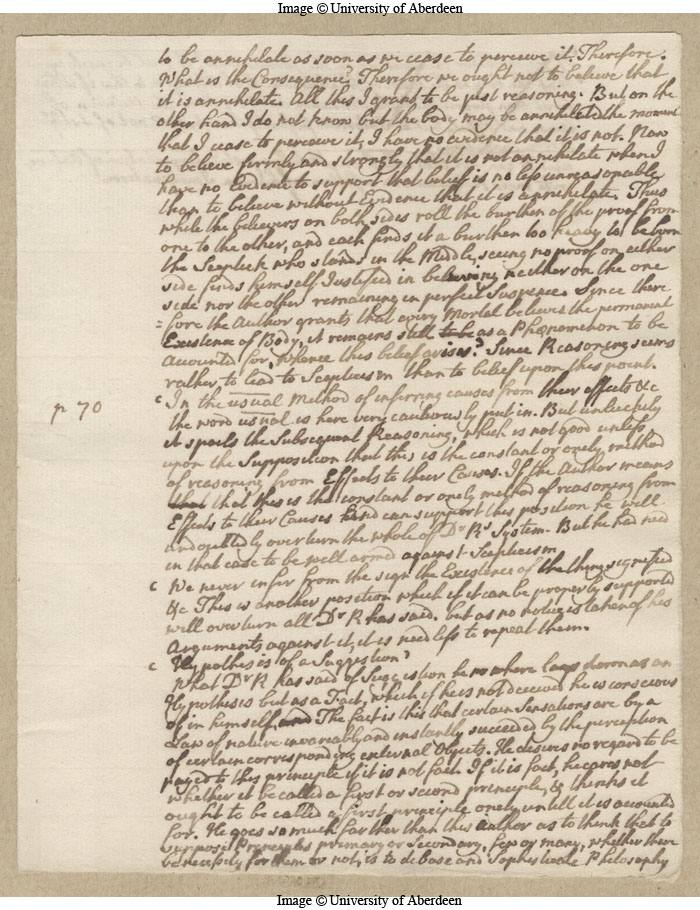 Image © University of Aberdeen
to be annihilate as soon as we cease to perceive it. Therefore.
What is the Consequence? Therefore we ought not to believe that
it is annihilate. All this I grant to be just reasoning. But on the
other hand I do not know but the body may be annihilated the moment
that I cease to perceive it, I have no evidence that it is not. Now
to believe firmly and strongly that it is not annihilate when I
have no Evidence to support that belief is no less unreasonable
than to believe without Evidence that it is annihilate. Thus
while the believers on both sides roll the burthen of the proof from
one to the other, and each finds it a burthen too heavy to be born
the Sceptick who stands in the Middle, seeing no proof on either
side finds himself Justified in believing neither on the one
side nor the other remaining in perfect Suspence. Since there
=fore the Author grants that every Mortal believes the permanent
Existence of Body, it remains still to be as a Phænomenon to be
accounted for, whence this belief arises? Since Reasoning seems
rather to lead to Scepticism than to belief upon this point.
p 70
c In the usual Method of inferring causes from their effects &c
the word usual is here very cautiously put in. But unluckily
it spoils the Subsequent Reasoning, which is not good unless
upon the Supposition that this is the constant or onely method
of reasoning from Effects to their Causes. If the Author means
that that this is the constant or onely method of reasoning from
Effects to their Causes and can support this position he will
undoubtedly overturn the whole of Dr Rs System. But he had need
in that case to be well armed against Scepticism
c We never infer from the sign the Existence of the thing signified
&c This is another position which if it can be properly supported
will overturn all Dr R has said. but as no notice is taken of his
Arguments against it, it is needless to repeat them.
c Hypothesis of a Suggestion?
What Dr R has said of Suggestion he no where lays down as an
Hypothesis but as a Fact, which if he is not deceived he is conscious
of in himself, and The fact is this that certain Sensations are by a
Law of nature invareably and instantly succeeded by the perception
of certain corresponding external Objects. He desires no regard to be
payed to this principle if it is not fact. If it is fact, he cares not
whether it be called a first or second principle, & thinks it
ought to be called a first principle onely untill it is accounted
for. He goes so much farther than this Author as to think that to
suppose Principles primary or Secondary, few or many, whether there
be necessity for them or not, is to debase and Sophisticate Philosophy
Image © University of Aberdeen